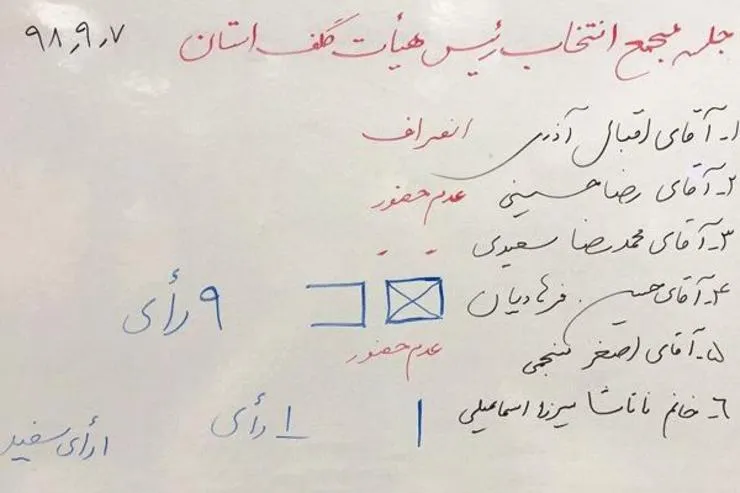 جلسه مجمع انتخاب رئیس هیأت گلف استان ۹۸٫۹٫۷
۱- آقای اقبال آذری انصراف
۲- آقای رضا حسینی عدم حضور
۳- آقای محمدرضا سعیدی " "
۴- آقای حسین فرهادیان ۹ رأی
۵- آقای اصغر منجمی عدم حضور
۶- خانم ناتاشا میرزا اسماعیلی ۱ رأی
۱ رأی سفید